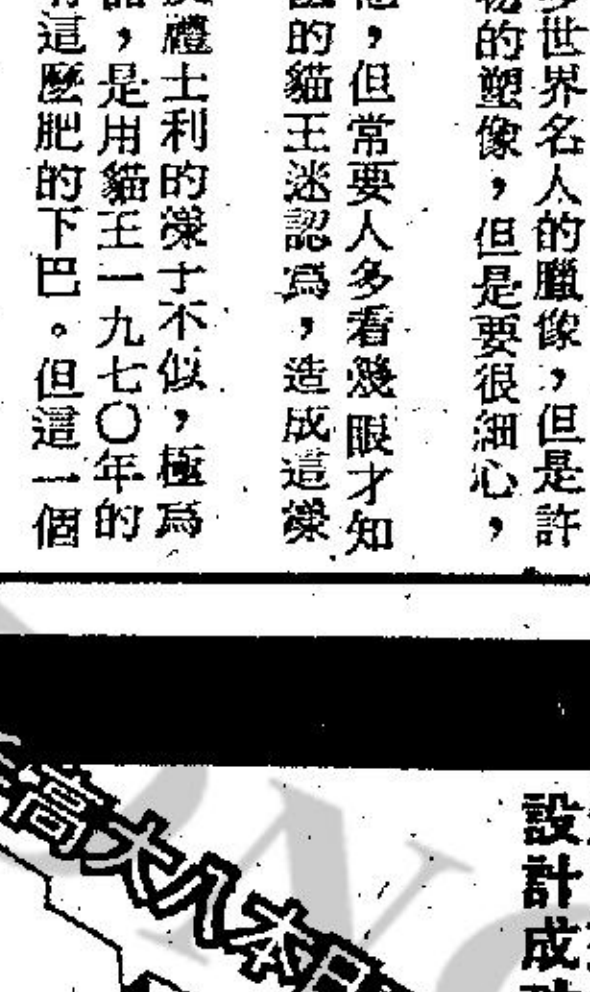 世界名人的臘像，但是許
的塑像，但是要很細心，
，但常要人多看幾眼才知
的貓王迷認爲，造成這樣
禮士利的樣子不似，極爲
，是用貓王一九七〇年的
這麼肥的下巴。但這一個
設計成
高大八本日